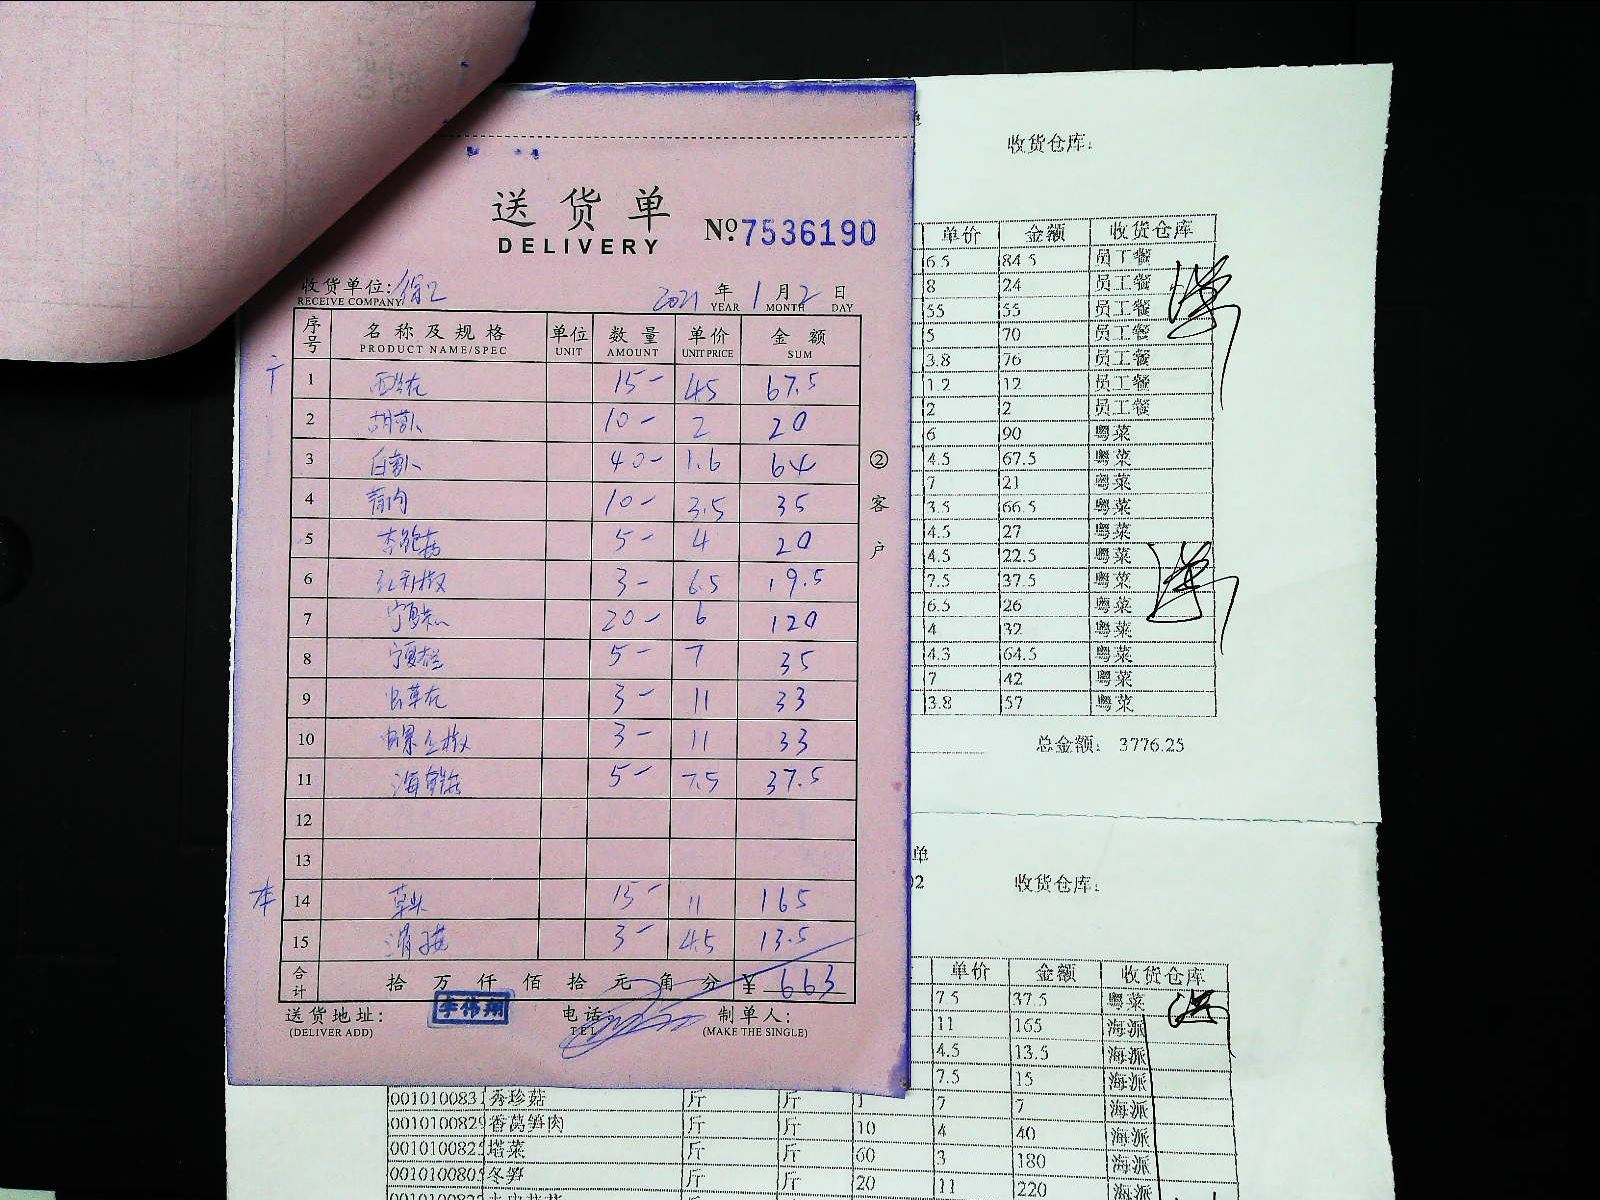 送货单
DELIVERY
№ 7536190
收货单位:
RECEIVE COMPANY
2021 年 1 月 2 日
YEAR MONTH DAY
序号 名称及规格 单位 数量 单价 金额
PRODUCT NAME/SPEC UNIT AMOUNT UNIT PRICE SUM
1 西芹 15- 4.5 67.5
2 胡萝卜 10- 2 20
3 白萝卜 40- 1.6 64
4 10- 3.5 35
5 5- 4 20
6 3- 6.5 19.5
7 宁夏 20- 6 120
8 宁夏 5- 7 35
9 虫草花 3- 11 33
10 3- 11 33
11 海鲜菇 5- 7.5 37.5
12
13
本
14 草头 15- 11 165
15 3- 4.5 13.5
合计 拾 万 仟 佰 拾 元 角 分 ¥ 663
送货地址: 电话: 制单人:
(DELIVER ADD) TEL (MAKE THE SINGLE)
李伟翔
② 客户
收货仓库:
单价 金额 收货仓库
6.5 84.5 员工餐
8 24 员工餐
55 55 员工餐
5 70 员工餐
3.8 76 员工餐
1.2 12 员工餐
2 2 员工餐
6 90 粤菜
4.5 67.5 粤菜
7 21 粤菜
3.5 66.5 粤菜
4.5 27 粤菜
4.5 22.5 粤菜
7.5 37.5 粤菜
6.5 26 粤菜
4 32 粤菜
4.3 64.5 粤菜
7 42 粤菜
3.8 57 粤菜
总金额: 3776.25
单
02 收货仓库:
单价 金额 收货仓库
7.5 37.5 粤菜
11 165 海派
4.5 13.5 海派
7.5 15 海派
0010100831 秀珍菇 斤 斤 1 7 7 海派
0010100829 香莴笋肉 斤 斤 10 4 40 海派
001010082 塔菜 斤 斤 60 3 180 海派
0010100805 冬笋 斤 斤 20 11 220 海派